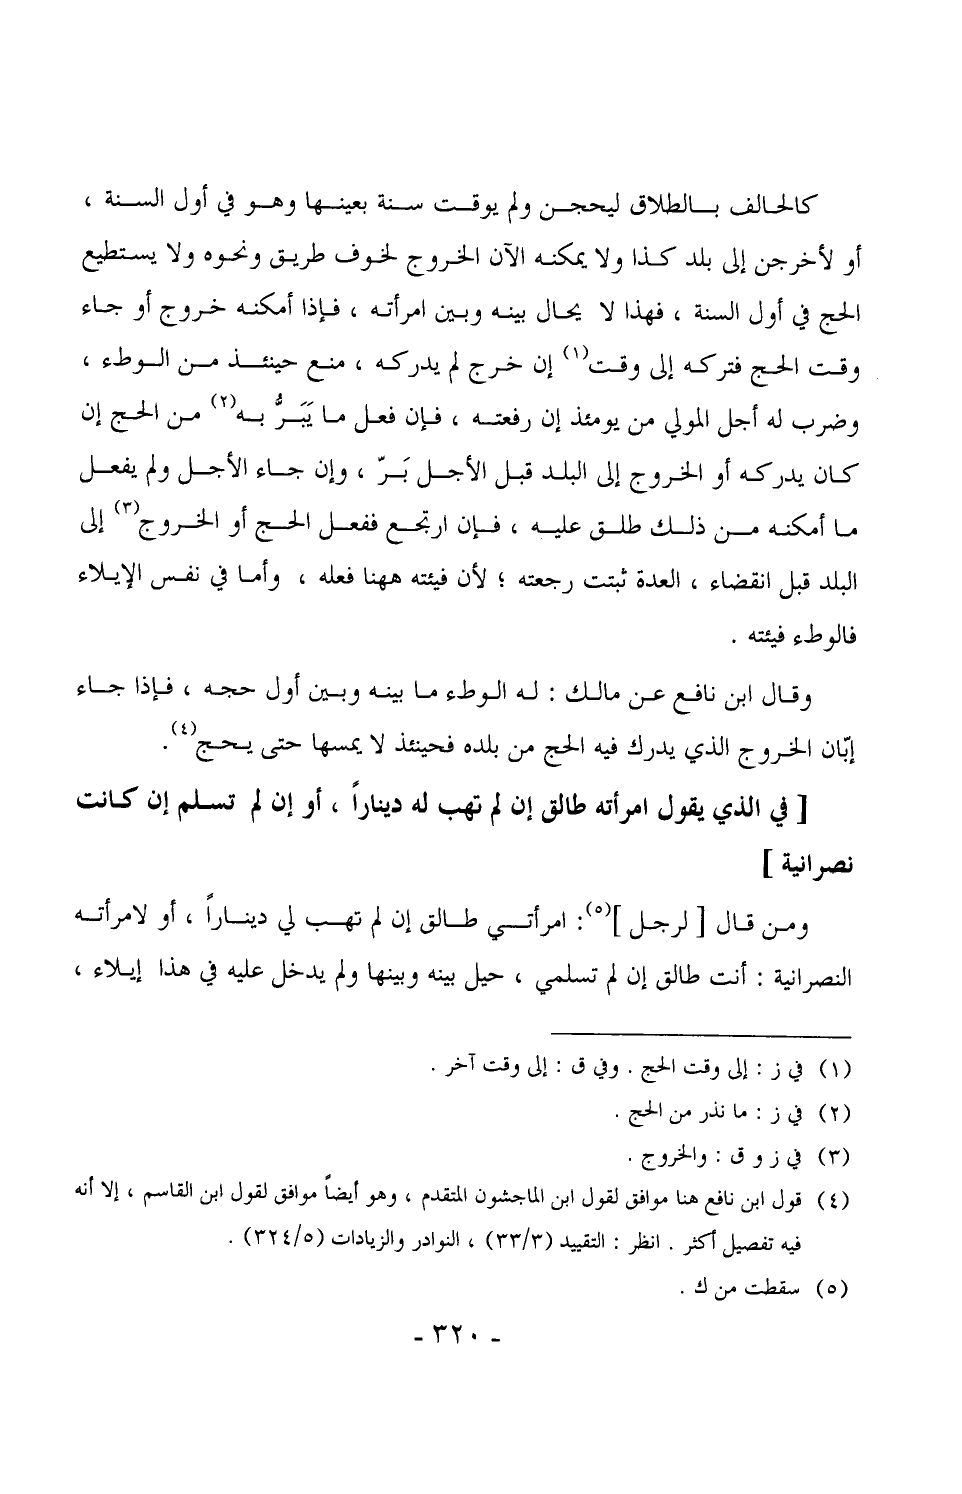 كالحالف بالطلاق ليحجن ولم يوقت سنة بعينها وهو في أول السنة ،
أو لأخرجن إلى بلد كذا ولا يمكنه الآن الخروج لخوف طريق ونحوه ولا يستطيع
الحج في أول السنة ، فهذا لا يحال بينه وبين امرأته ، فإذا أمكنه خروج أو جاء
وقت الحج فتركه إلى وقت(١) إن خرج لم يدركه ، منع حينئذ من الوطء ،
وضرب له أجل المولي من يومئذ إن رفعته ، فإن فعل ما يَبَرُّ به(٢) من الحج إن
كان يدركه أو الخروج إلى البلد قبل الأجل بَرّ ، وإن جاء الأجل ولم يفعل
ما أمكنه من ذلك طلق عليه ، فإن ارتجع ففعل الحج أو الخروج(٣) إلى
البلد قبل انقضاء ، العدة ثبتت رجعته ؛ لأن فيئته ههنا فعله ، وأما في نفس الإيلاء
فالوطء فيئته .
وقال ابن نافع عن مالك : له الوطء ما بينه وبين أول حجه ، فإذا جاء
إبّان الخروج الذي يدرك فيه الحج من بلده فحينئذ لا يمسها حتى يحج(٤).
[ في الذي يقول امرأته طالق إن لم تهب له ديناراً ، أو إن لم تسلم إن كانت
نصرانية ]
ومن قال [ لرجل ](٥): امرأتي طالق إن لم تهب لي ديناراً ، أو لامرأته
النصرانية : أنت طالق إن لم تسلمي ، حيل بينه وبينها ولم يدخل عليه في هذا إيلاء ،
(١) في ز : إلى وقت الحج . وفي ق : إلى وقت آخر .
(٢) في ز : ما نذر من الحج .
(٣) في ز و ق : والخروج .
(٤) قول ابن نافع هنا موافق لقول ابن الماجشون المتقدم ، وهو أيضاً موافق لقول ابن القاسم ، إلا أنه
فيه تفصيل أكثر . انظر : التقييد (٣٣/٣) ، النوادر والزيادات (٣٢٤/٥) .
(٥) سقطت من ك .
- ٣٢٠ -